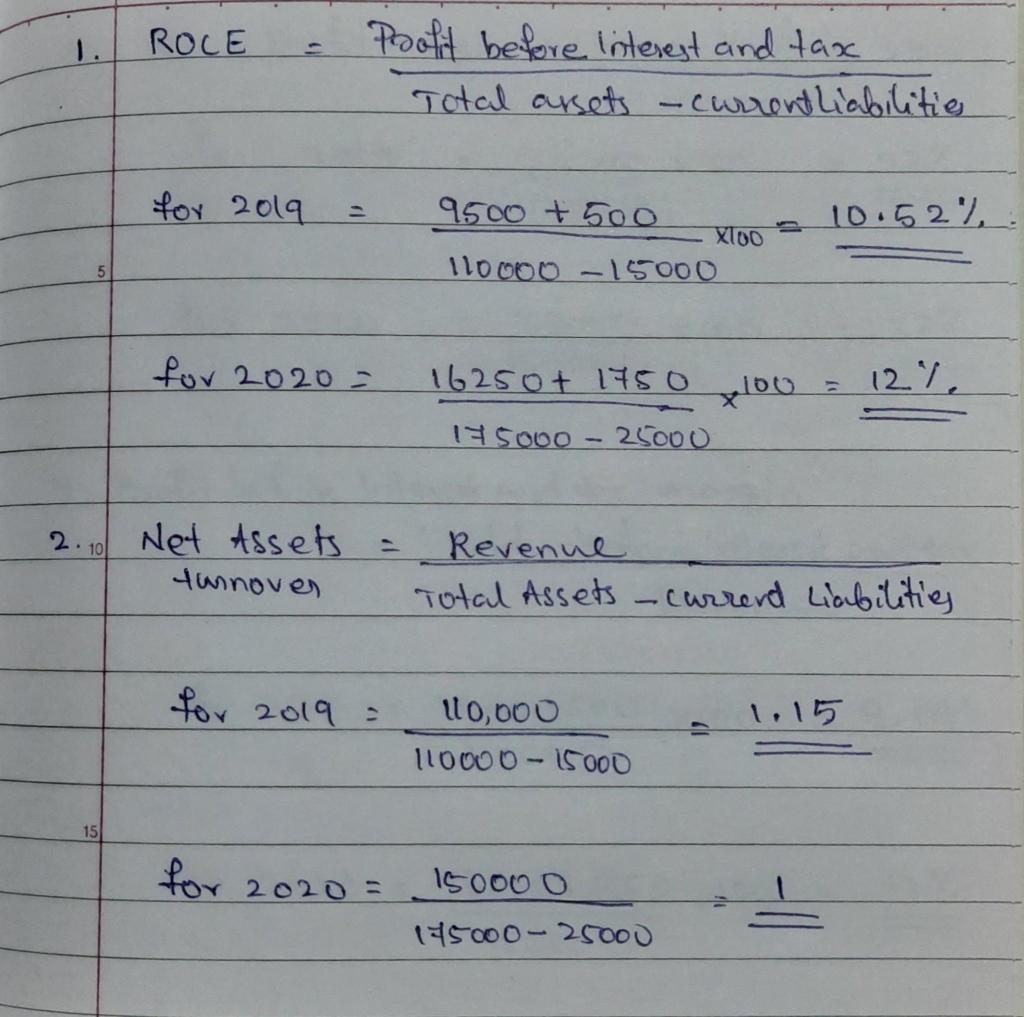 1. ROCE = Profit before interest and tax
Total assets - current liabilities
for 2019 = 9500 + 500 x100 = 10.52%
5
110000 - 15000
for 2020 = 16250 + 1750 x 100 = 12%
175000 - 25000
2. 10 Net Assets = Revenue
turnover Total Assets - current Liabilities
for 2019 = 110,000 = 1.15
110000 - 15000
15
for 2020 = 150000 = 1
175000 - 25000